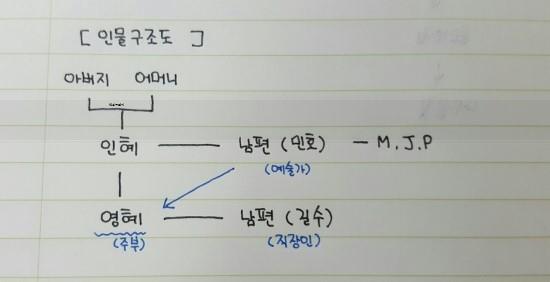 [ 인물구조도 ]
아버지 어머니
인혜 — 남편 (민호) — M.J.P
(예술가)
영혜 — 남편 (길수)
(주부) (직장인)